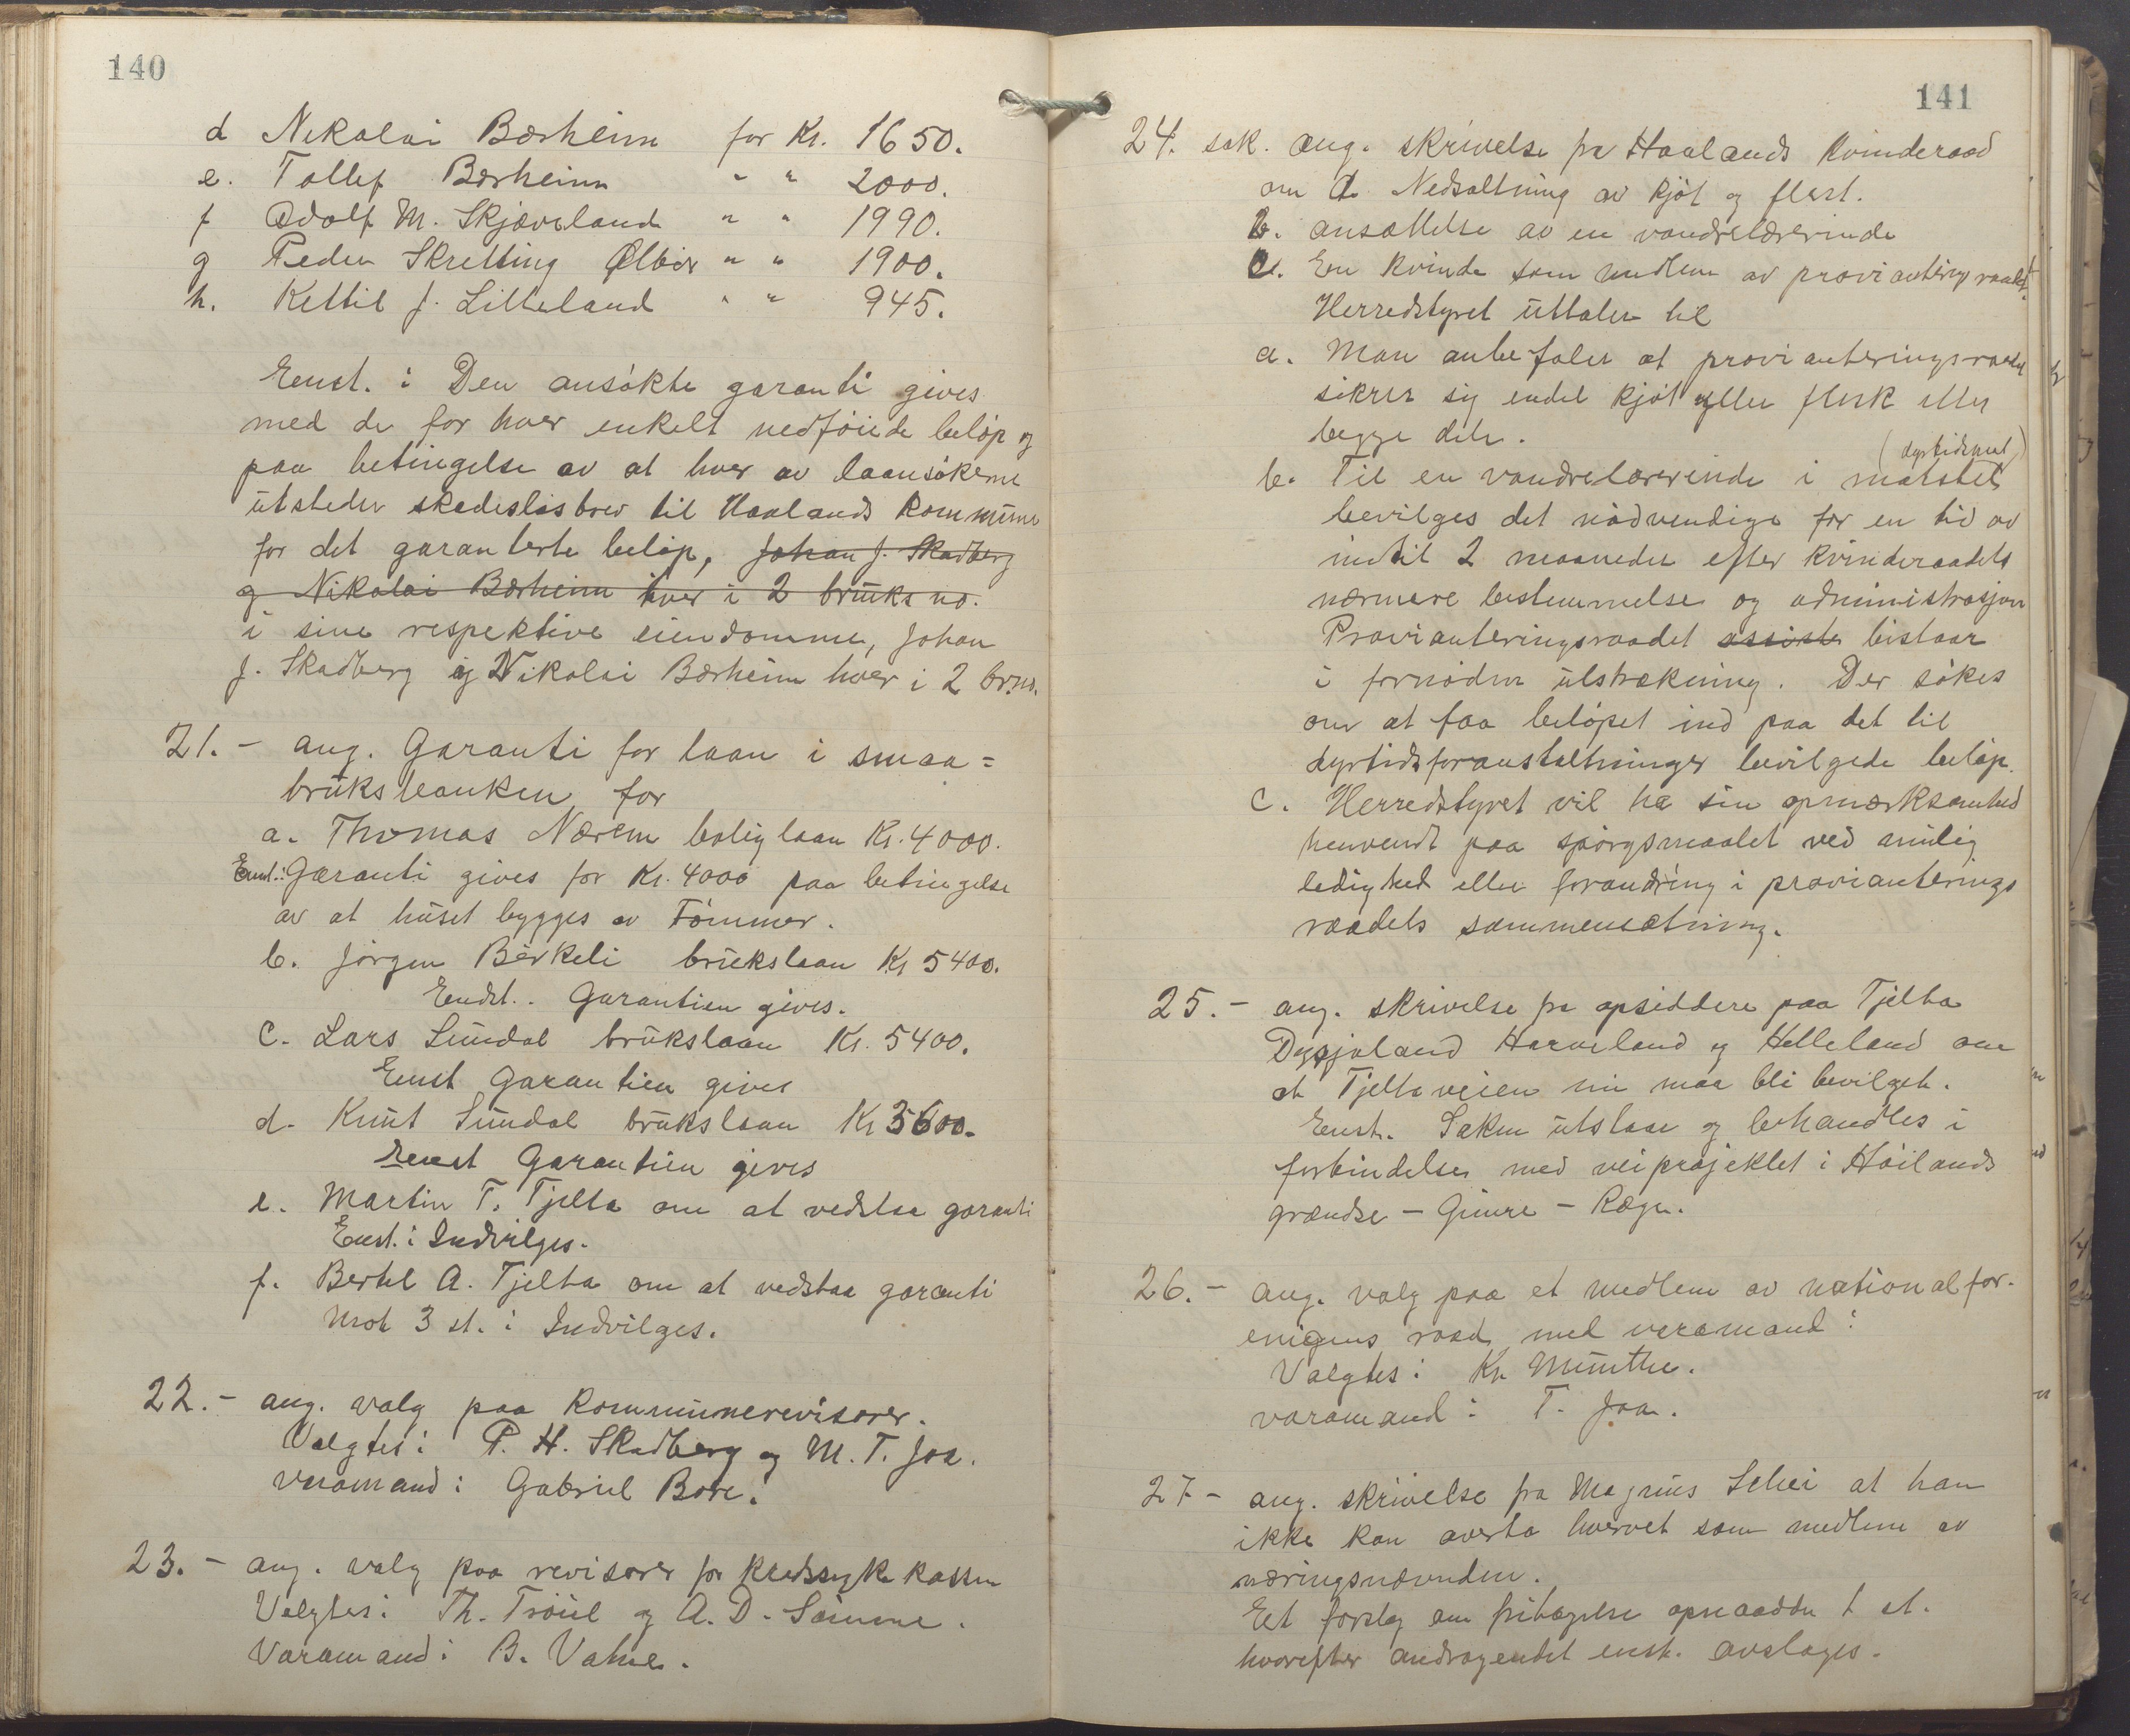 140
d Nikolai Bærheim for Kr. 1650.
e. Tollef Bærheim " " 2000.
f Adolf M. Skjæveland " " 1990.
g Peder Skretting Ølbør " " 1900.
h. Kettil J. Litleland " " 945.
Enst.: Den ansøkte garanti gives
med de for hver enkelt vedføiede beløp og
paa betingelse av at hver av laansøkerne
utsteder skadesløsbrev til Haalands Kommune
for det garanterte beløp, Johan J. Skadberg
og Nikolai Bærheim hver i 2 bruks no.
i sine respektive eiendomme, Johan
J. Skadberg og Nikolai Bærheim hver i 2 brno.
21. - ang. Garanti for laan i smaa=
bruksbanken for
a. Thomas Nærem boliglaan Kr. 4000.
Enst.: Garanti gives for Kr. 4000 paa betingelse
av at huset bygges av Tømmer.
b. Jørgen Birkeli brukslaan Kr 5400.
Endst. Garantien gives.
c. Lars Sundal brukslaan Kr. 5400.
Enst Garantien gives
d. Knut Sundal brukslaan Kr 3600.
Enst Garantien gives
e. Martin T. Tjelta om at vedstaa garanti
Enst.: Indvilges.
f. Bertel A. Tjelta om at vedstaa garanti
Mot 3 st.: Indvilges.
22. - ang. valg paa Kommunerevisorer.
Valgtes: P. H. Skadberg og M. T. Joa.
Varamand: Gabriel Bore.
23. - ang. valg paa revisorer for Kredssykekassen
Valgtes: Th. Trøiel og A. D. Sømme.
Varamand: B. Vatne.
141
24. sak. ang. skrivelse fra Haalands Kvinderaad
om a. Nedsaltning av kjøt og flesk.
b. ansættelse av en vandrelærerinde
c. En kvinde som medlem av provianteringsraadet.
Herredstyret uttaler til
a. Man anbefaler at provianteringsraadet
sikrer sig endel kjøt eller flesk eller
begge dele.
(dyrtidsmat)
b. Til en vandrelærerinde i matstel
bevilges det nødvendige for en tid av
indtil 2 maaneder efter kvinderaadets
nærmere bestemmelse og administrasjon
Provianteringsraadet assiste bistaar
i fornøden utstrækning. Der søkes
om at faa beløpet ind paa det til
dyrtidsforanstaltninger bevilgede beløp.
c. Herredstyret vil ha sin opmerksomhed
henvendt paa spørgsmaalet ved mulig
ledighed eller forandring i provianterings
raadets sammensætning.
25. - ang. skrivelse fra opsiddere paa Tjelta
Dysjaland Harveland og Helleland om
at Tjeltaveien nu maa bli bevilget.
Enst. Saken utstaar og behandles i
forbindelse med veiprojektet i Høilands
grændse - Gimre - Ræge.
26. - ang. valg paa et medlem av nationalfor-
eningens raad med varamand:
Valgtes: Kr. Münthe.
varamand: T. Joa.
27 - ang. skrivelse fra Magnus Schei at han
ikke kan overta hvervet som medlem av
næringsnævnden.
Et forslag om fritagelse opnaadde 1 st.
hvorefter andragendet enst. avslages.